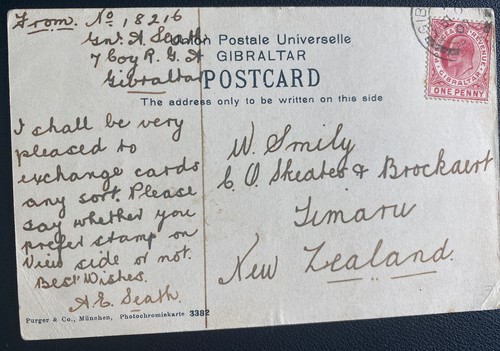 From. No 18216
Gnr A. Seath
7 Coy R. G. A
Gibraltar
Union Postale Universelle
GIBRALTAR
POSTCARD
The address only to be written on this side
I shall be very
pleased to
exchange cards
any sort. Please
say whether you
prefer stamp on
View side or not.
Best Wishes.
A. E. Seath.
W. Smily
C/O Skeates & Brockaert
Timaru
New Zealand.
GIBRALTAR
ONE PENNY
Purger & Co., München, Photochromiekarte 3382